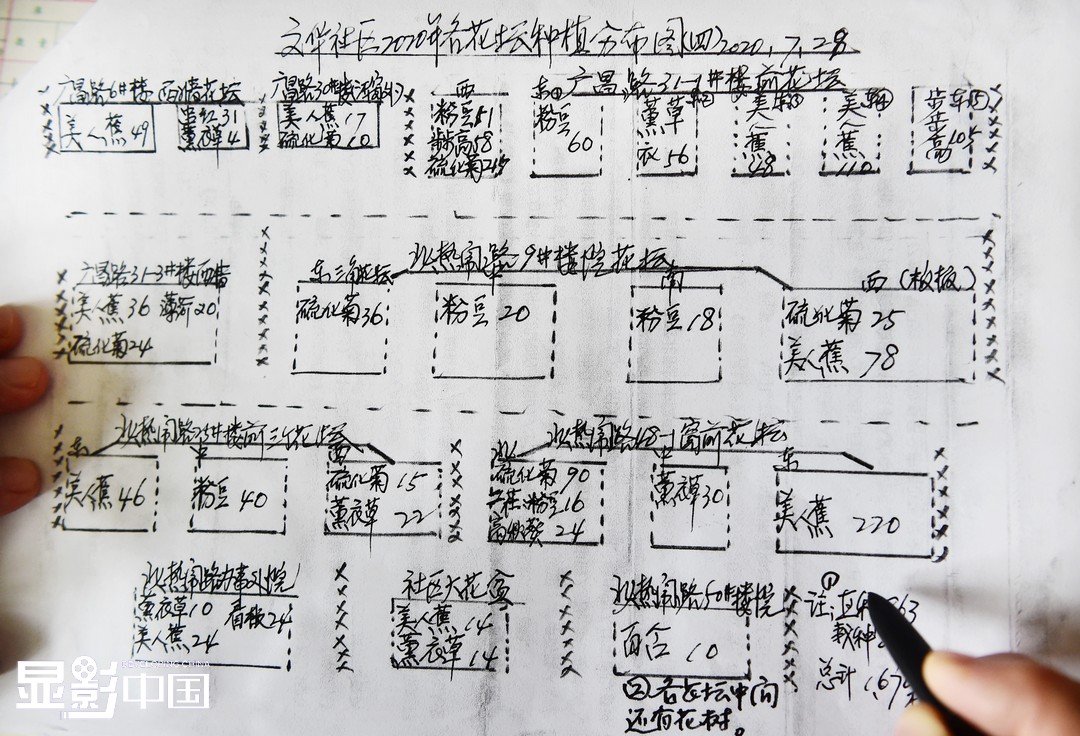 文华社区2020年各花坛种植分布图(四)2020.7.28
广昌路6#楼西墙花坛
美人蕉49
串红31
薰衣草4
美人蕉17
硫化菊10
西
粉豆51
硫化菊
东
广昌路31-1#楼前花坛
粉豆
60
薰草
衣56
美人蕉
48
美人蕉
110
步步高105
广昌路31-3#楼西墙
美人蕉36 薄荷20
硫化菊24
北热闹路9#楼院花坛
东三角花坛
硫化菊36
粉豆20
南
粉豆18
西(板板)
硫化菊25
美人蕉 78
北热闹路25#楼前三个花坛
东
美人蕉46
中
粉豆40
西
硫化菊15
薰衣草 22
北热闹路48-1窗前花坛
北
硫化菊90
粉豆16
24
中
薰衣草30
东
美人蕉 220
北热闹路办事处院
薰衣草10
24
美人蕉24
社区大花盆
美人蕉14
薰衣草14
北热闹路50#楼院
百合 10
②各花坛中间
还有花树。
注:①
63
栽种
总计1,679
显影中国